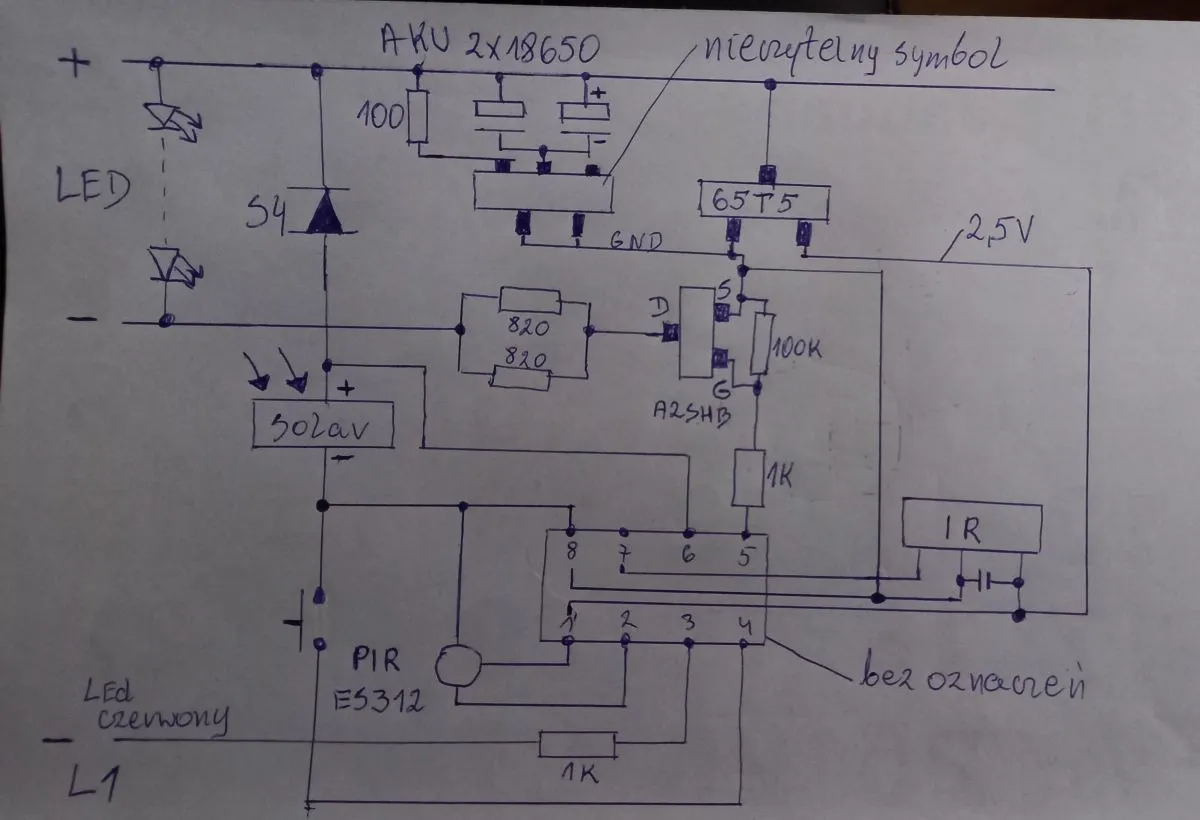 AKU 2x18650
nieczytelny symbol
+
100
+
-
LED
S4
65T5
GND
2,5V
-
820
820
D
S
G
100K
A2SHB
+
solar
-
1K
IR
8 7 6 5
1 2 3 4
PIR
ES312
bez oznaczeń
Led
czerwony
-
L1
1K